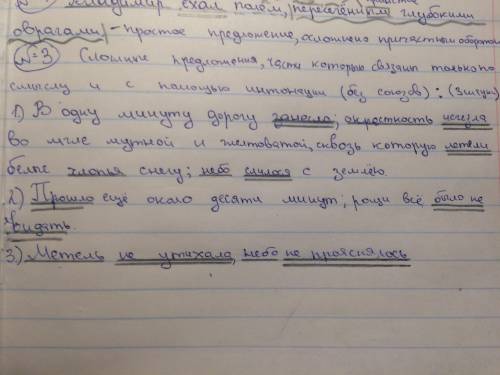 Владимир ехал полем, пересечённым глубокими
оврагами - простое предложение, осложнено причастным оборотом
№3 Сложные предложения, части которых связаны только по
смыслу и с помощью интонации (без союзов): (3 штуки)
1) В одну минуту дорогу занесло; окрестность исчезла
во мгле мутной и желтоватой, сквозь которую летели
белые хлопья снегу; небо слилося с землёю.
2) Прошло ещё около десяти минут; рощи всё было не
видать.
3) Метель не утихала, небо не прояснялось